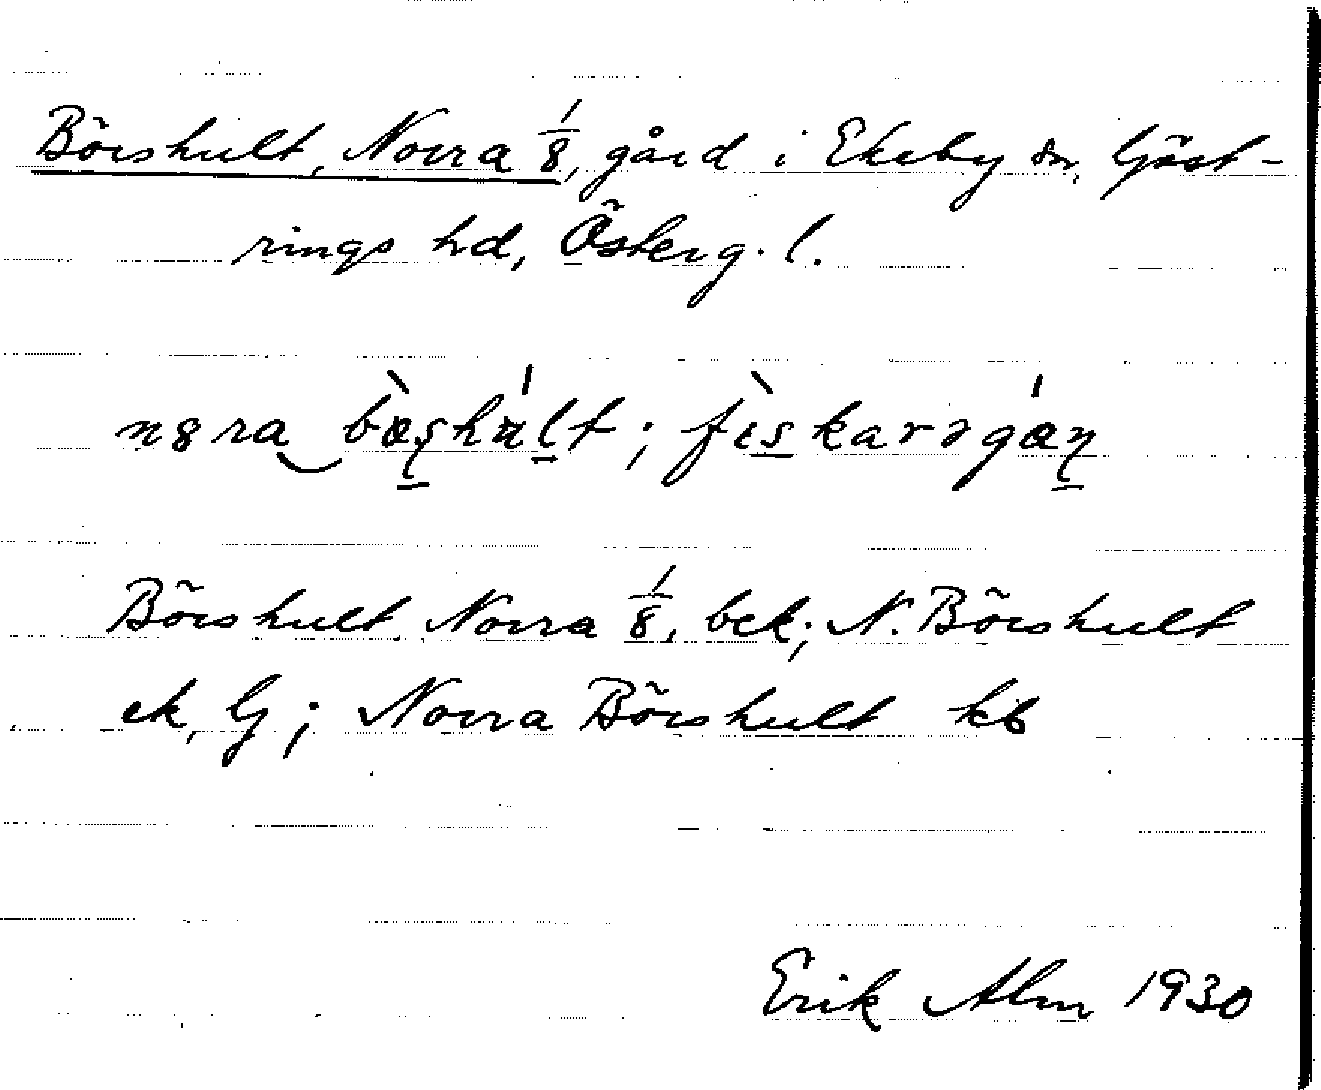 Börshult, Norra 1/8, gård i Ekeby sn, Göst-
rings hd, Österg. l.
n8ra bœʂhult; fiskarəgɑ̀ɳ
Börshult Norra 1/8, bek; N. Börshult
ek, G; Norra Börshult kb
Erik Alm 1930